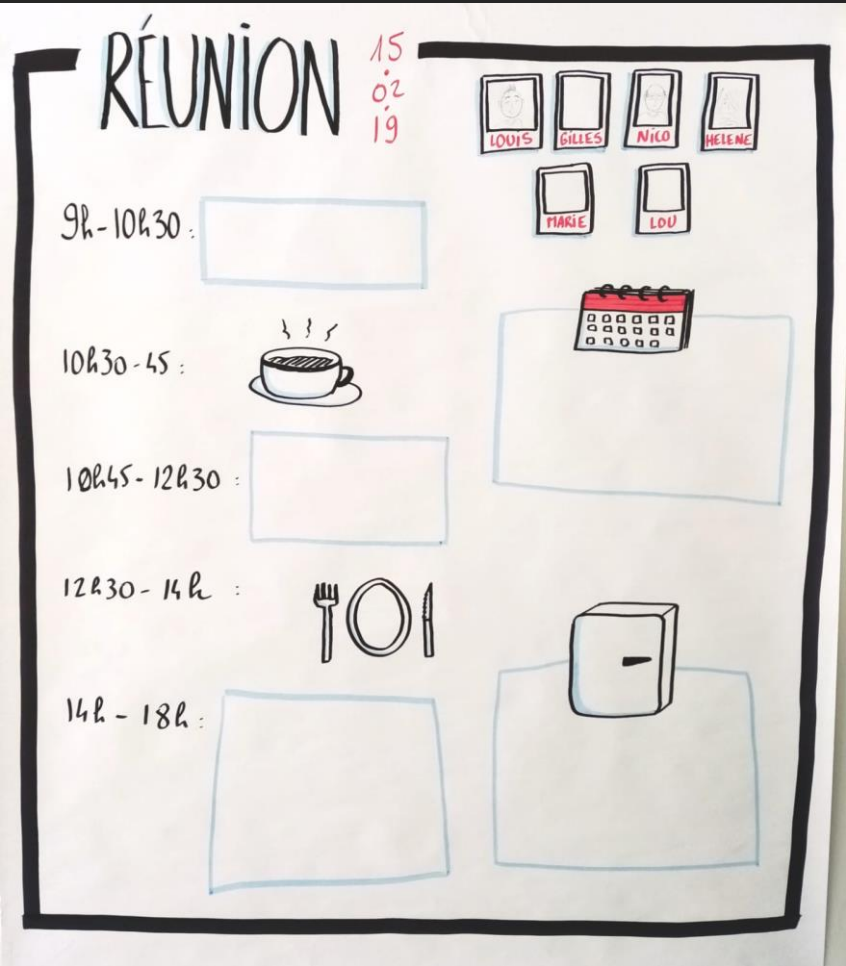 RÉUNION
15
.
02
.
19
LOUIS
GILLES
NICO
HELENE
MARIE
LOU
9h-10h30 :
10h30-45 :
10h45-12h30 :
12h30-14h :
14h-18h :